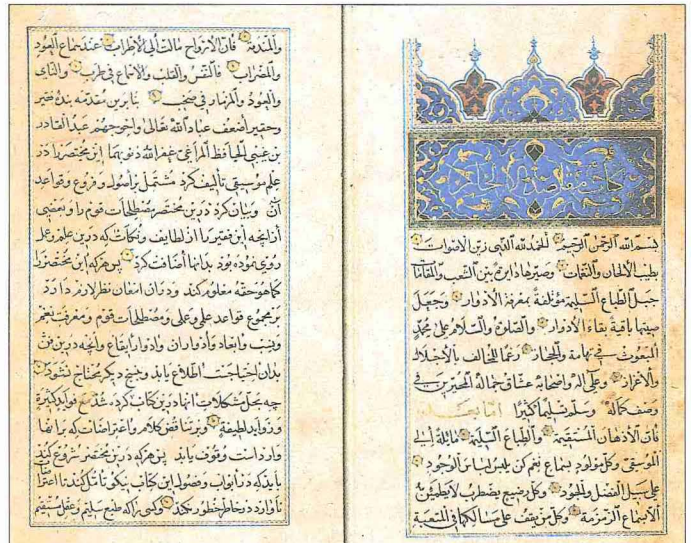 كتاب مقاصد الالحان
بسم الله الرحمن الرحيم الحمد لله الذى زين الاصوات
بطيب الالحان والنغمات وصيرها دايرة بين الشعب والمقامات
جبل الطباع السليمة مؤلفة بمعرفة الأدوار وجعل
صيتها باقية بقاء الأدوار والصلوة والسلام على محمد
المبعوث فى تهامة والحجاز
والأعزاز وعلى اله واصحابه عشاق جماله المحيرين فى
وصف كماله وسلم تسليما كثيرا اما بعد
فان الأذهان المستقيمة والطباع السليمة مائلة الى
الموسيقى وكل مولود بسماع نغم كن يلبس لباس الوجود
على سبيل الفضل والجود وكل رضيع يضطرب لا يطمئن
الا بسماع الزمزمة وكل من يقف على مسالكها فى الشعبة
فان الأرواح مالت الى الأطراب عند سماع العود
والمضراب فالنفس والقلب والأسماع فى طرب والناى
والعود والمزمار فى صخب بنا برين مقدمه بنده فقير
وحقير أضعف عباد الله تعالى واحوجهم عبد القادر
بن غيبى الحافظ المراغى غفر الله ذنوبهما اين مختصر را در
علم موسيقى تأليف كرد مشتمل بر أصول وفروع وقواعد
آن وبيان كرد درين مختصر مصطلحات قوم را وبعضى
از آنچه اين فقير را از لطايف ونكات كه درين علم وعمل
روى نموده بود بدانها اضافت كرد پس هركه اين مختصر را
كما هو حقه معلوم كند ودر آن امعان نظر لازم دارد
بر مجموع قواعد علمى وعملى ومصطلحات قوم ومعرفت نغم
ونسب وابعاد وادوار آن وادوار ايقاع وآنچه درين فن
بدان احتياجست اطلاع يابد وبهيچ ديگر محتاج نشود
چه بحل مشكلات آنها درين كتاب كرده شد مع فوايد كثيرة
وزوايد لطيفة وبر تناقض كلام واعتراضات كه بر آنها
وارد است وقوف يابد پس هركه درين مختصر شروع كند
بايد كه در ابواب وفصول اين كتاب نيكو تأمل كند تا اعتراض
نا وارد در خاطر خطور نكند وكسى را كه طبع سليم وعقل مستقيم